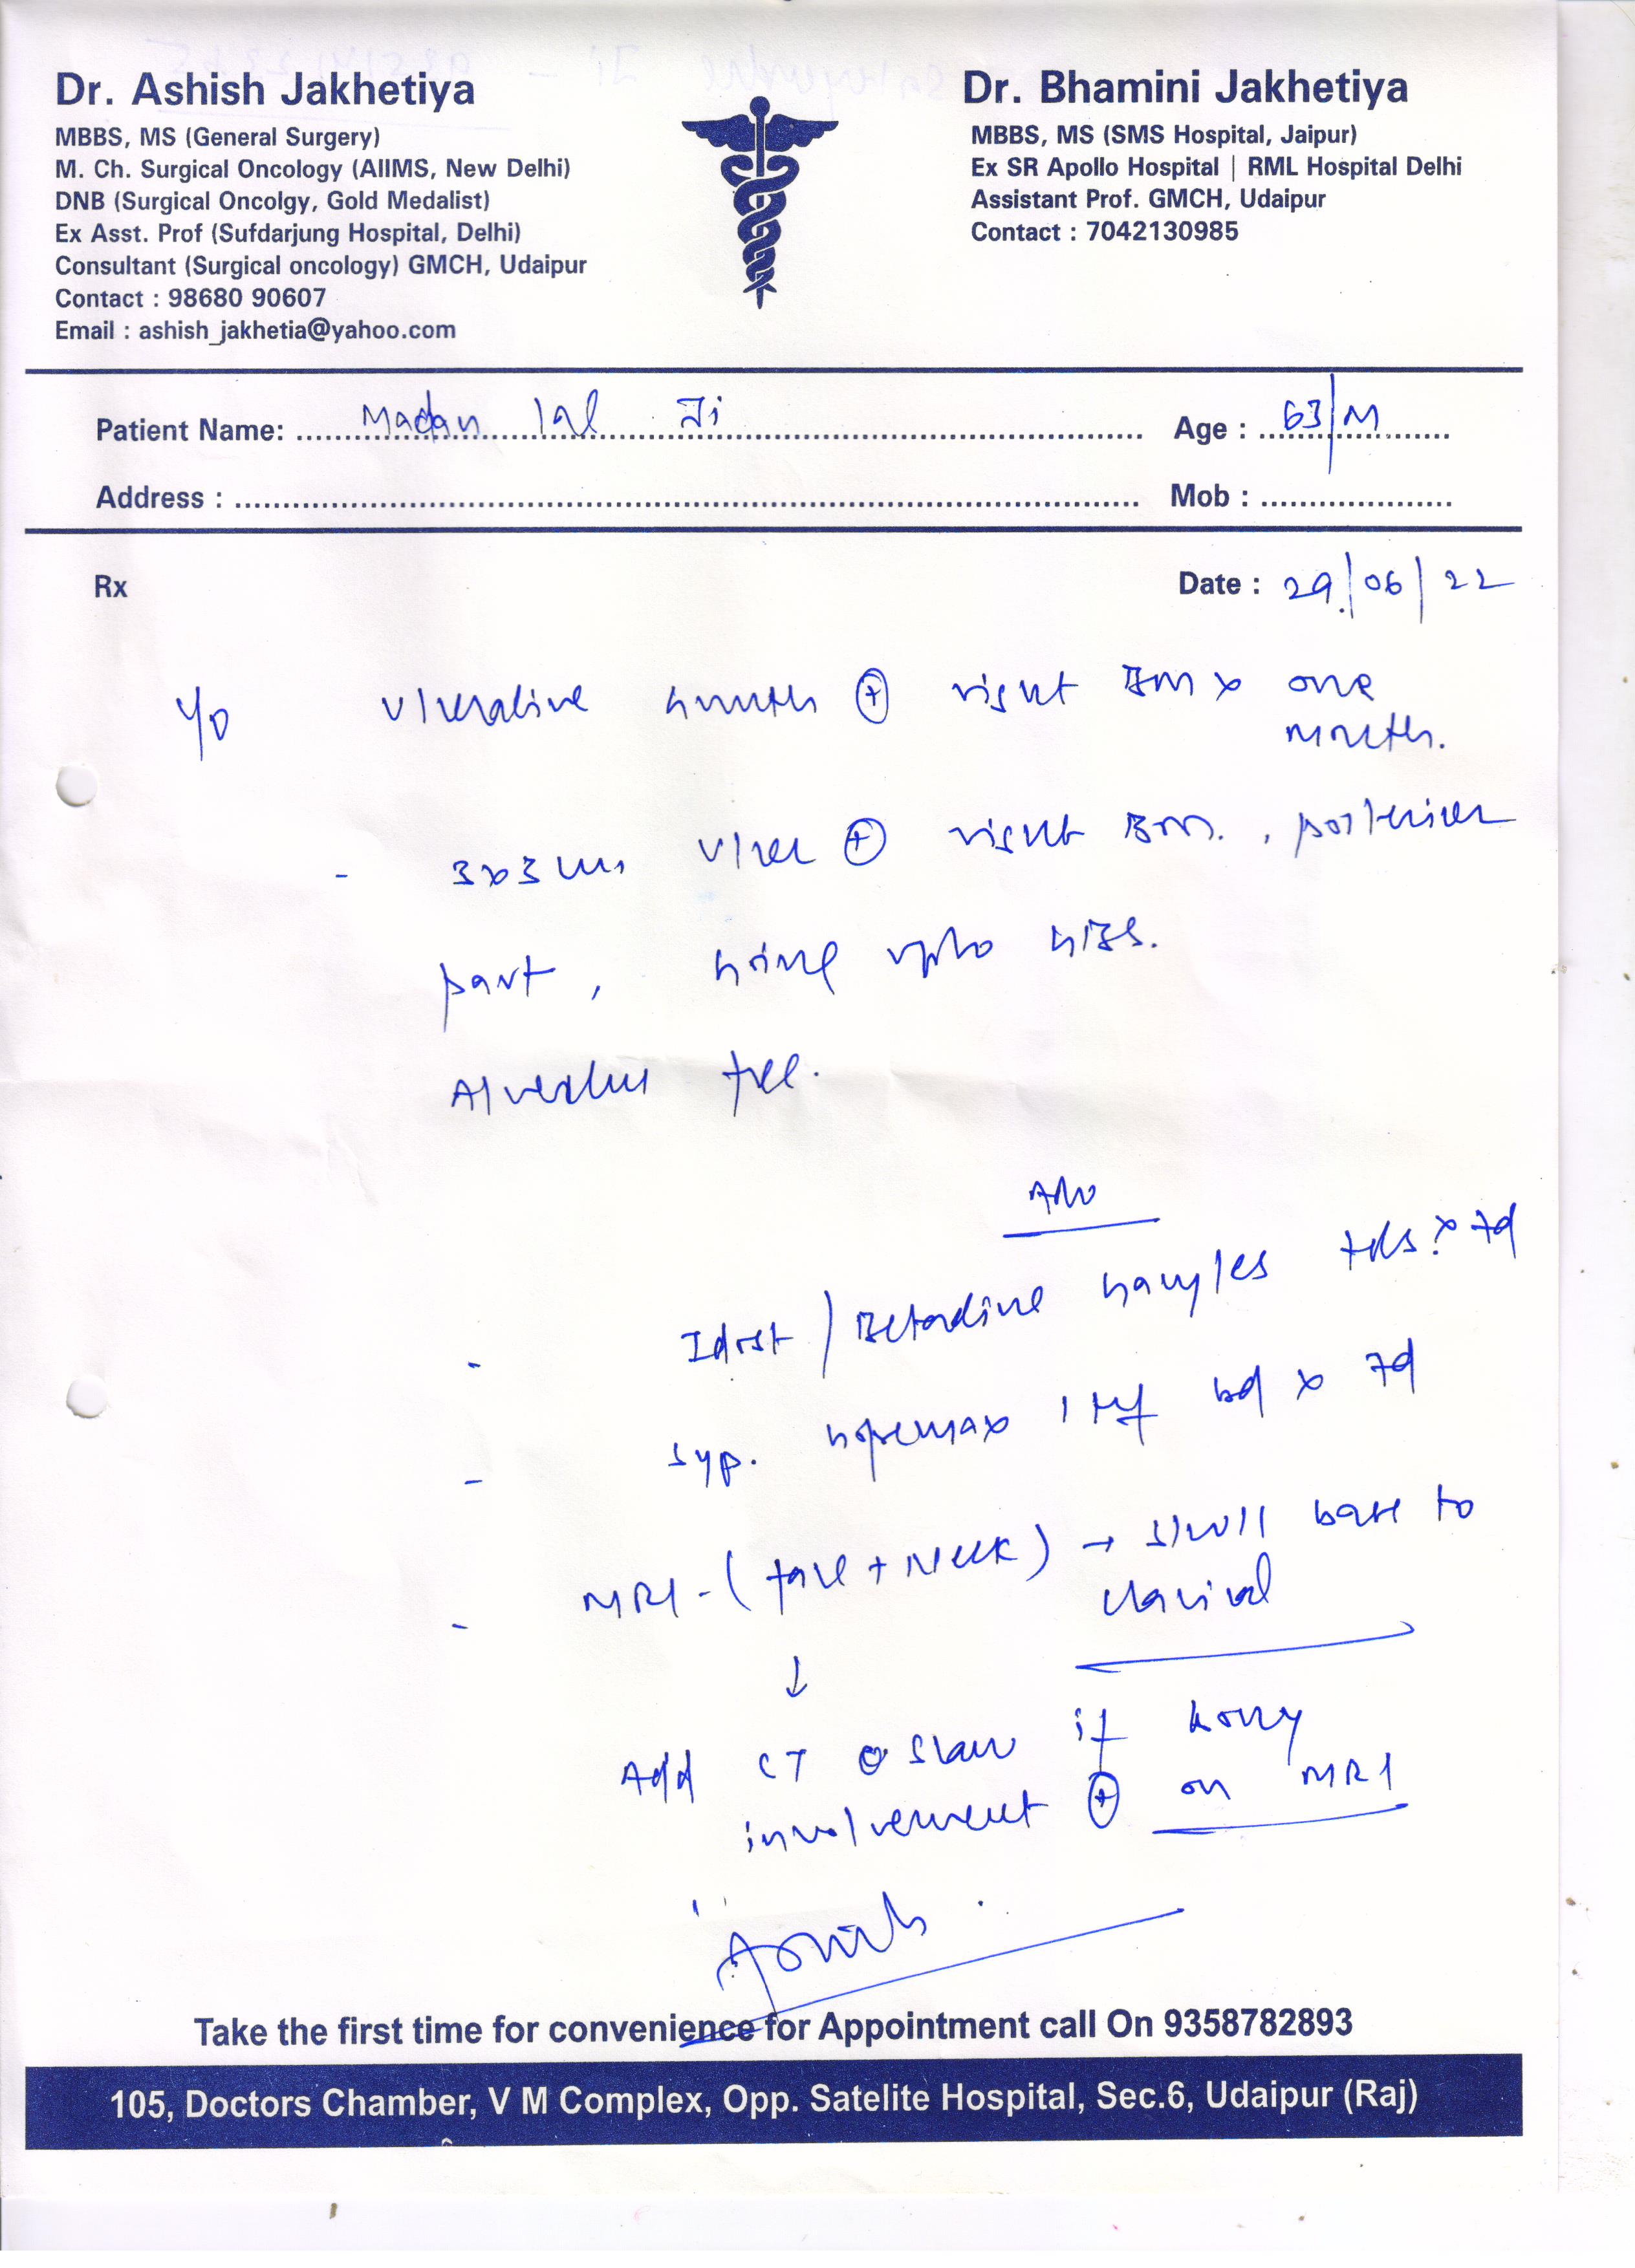 Dr. Ashish Jakhetiya
MBBS, MS (General Surgery)
M. Ch. Surgical Oncology (AIIMS, New Delhi)
DNB (Surgical Oncolgy, Gold Medalist)
Ex Asst. Prof (Sufdarjung Hospital, Delhi)
Consultant (Surgical oncology) GMCH, Udaipur
Contact : 98680 90607
Email : ashish_jakhetia@yahoo.com
Dr. Bhamini Jakhetiya
MBBS, MS (SMS Hospital, Jaipur)
Ex SR Apollo Hospital | RML Hospital Delhi
Assistant Prof. GMCH, Udaipur
Contact : 7042130985
Patient Name: Madan lal Ji Age : 63/M
Address : Mob :
Rx Date : 29/06/22
Ulcerative growth + right BM x one
month.
- 3x3 cms Ulcer + right BM. , posterior
part, going upto GBS.
Alveolus free.
Adv
- / Betadine gargles tds x 7d
- Syp. 1 tsf bd x 7d
- MRI - (face + Neck) → skull base to
clavicle
↓
Add CT scan if bony
involvement + on MRI
Ashish
Take the first time for convenience for Appointment call On 9358782893
105, Doctors Chamber, V M Complex, Opp. Satelite Hospital, Sec.6, Udaipur (Raj)